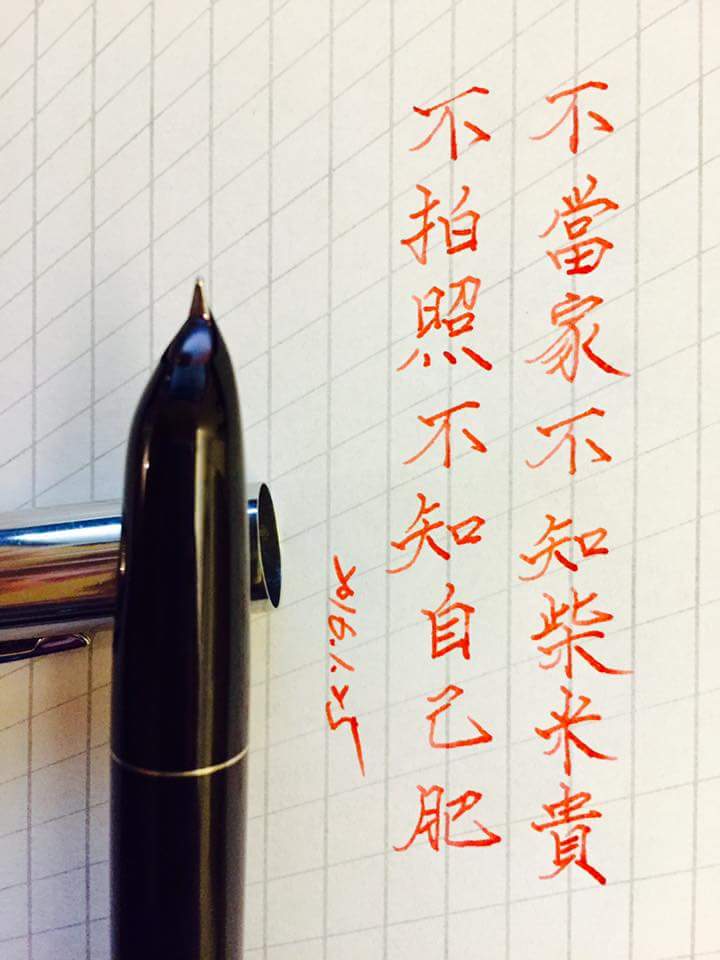 不當家不知柴米貴
不拍照不知自己肥
2016.1.25